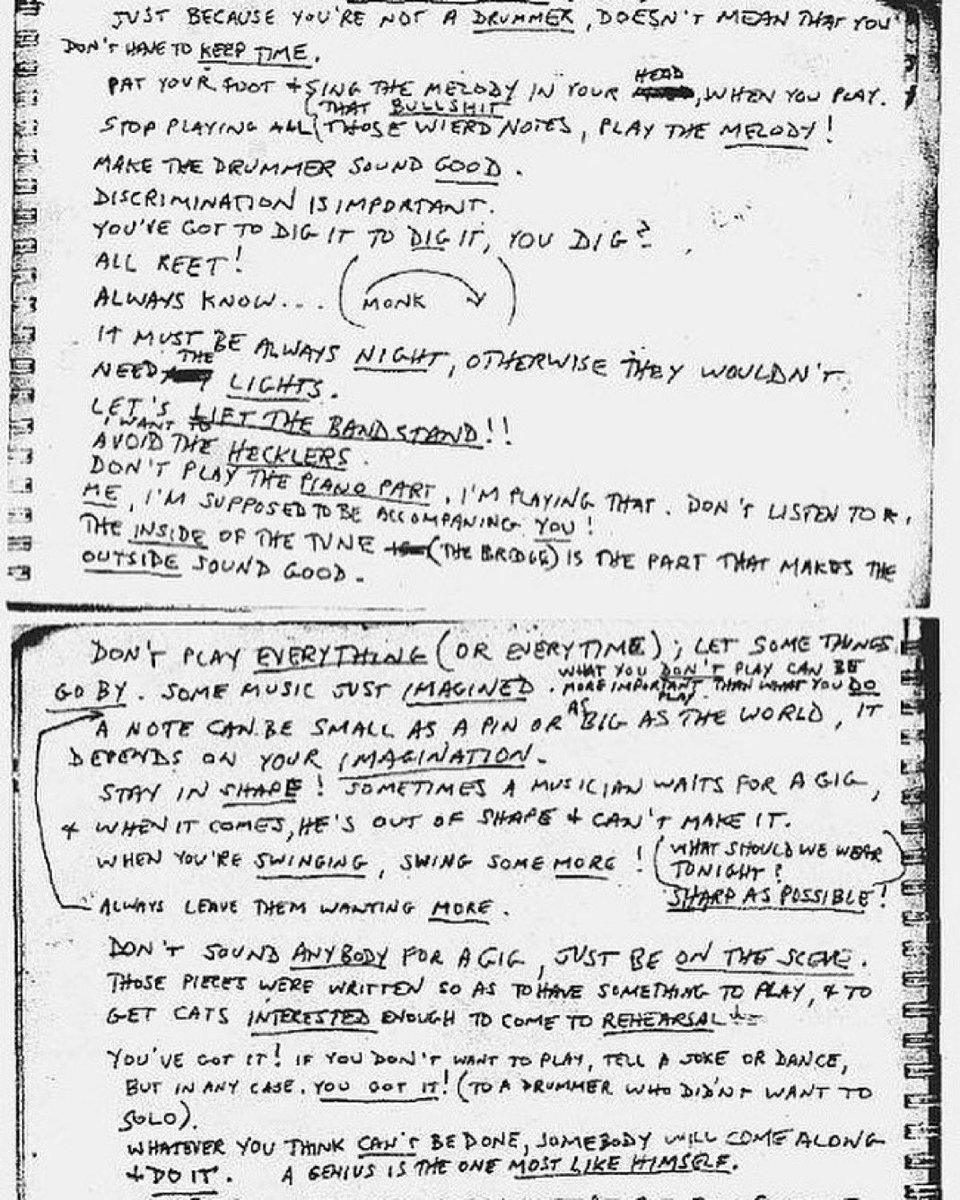 JUST BECAUSE YOU'RE NOT A DRUMMER, DOESN'T MEAN THAT YOU
DON'T HAVE TO KEEP TIME.
PAT YOUR FOOT + SING THE MELODY IN YOUR HEAD, WHEN YOU PLAY.
STOP PLAYING ALL (THAT BULLSHIT
THOSE WIERD NOTES, PLAY THE MELODY!
MAKE THE DRUMMER SOUND GOOD.
DISCRIMINATION IS IMPORTANT.
YOU'VE GOT TO DIG IT TO DIG IT, YOU DIG?
ALL REET!
ALWAYS KNOW... (MONK)
IT MUST BE ALWAYS NIGHT, OTHERWISE THEY WOULDN'T
NEED THE LIGHTS.
LET'S LIFT THE BAND STAND!!
I WANT TO
AVOID THE HECKLERS.
DON'T PLAY THE PIANO PART, I'M PLAYING THAT. DON'T LISTEN TO
ME, I'M SUPPOSED TO BE ACCOMPANING YOU!
THE INSIDE OF THE TUNE (THE BRIDGE) IS THE PART THAT MAKES THE
OUTSIDE SOUND GOOD.
DON'T PLAY EVERYTHING (OR EVERYTIME); LET SOME THINGS
GO BY. SOME MUSIC JUST IMAGINED. WHAT YOU DON'T PLAY CAN BE
MORE IMPORTANT THAN WHAT YOU DO
PLAY
A NOTE CAN BE SMALL AS A PIN OR AS BIG AS THE WORLD, IT
DEPENDS ON YOUR IMAGINATION.
STAY IN SHAPE! SOMETIMES A MUSICIAN WAITS FOR A GIG,
+ WHEN IT COMES, HE'S OUT OF SHAPE + CAN'T MAKE IT.
WHEN YOU'RE SWINGING, SWING SOME MORE!
(WHAT SHOULD WE WEAR
TONIGHT?
SHARP AS POSSIBLE!)
ALWAYS LEAVE THEM WANTING MORE.
DON'T SOUND ANYBODY FOR A GIG, JUST BE ON THE SCENE.
THOSE PIECES WERE WRITTEN SO AS TO HAVE SOMETHING TO PLAY, & TO
GET CATS INTERESTED ENOUGH TO COME TO REHEARSAL
YOU'VE GOT IT! IF YOU DON'T WANT TO PLAY, TELL A JOKE OR DANCE,
BUT IN ANY CASE, YOU GOT IT! (TO A DRUMMER WHO DIDN'T WANT TO
SOLO).
WHATEVER YOU THINK CAN'T BE DONE, SOMEBODY WILL COME ALONG
+ DO IT. A GENIUS IS THE ONE MOST LIKE HIMSELF.